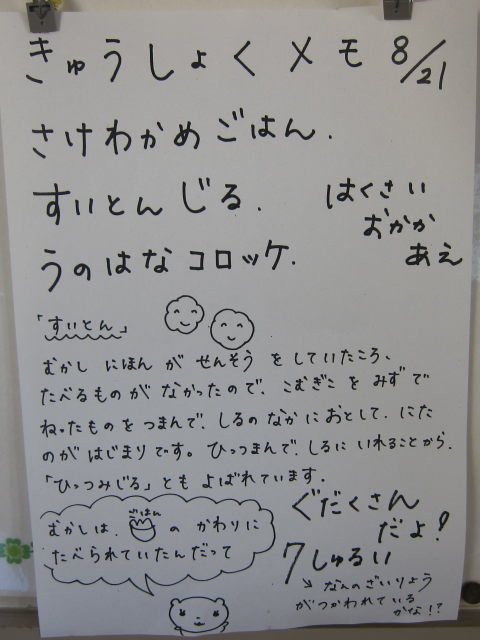 きゅうしょくメモ 8/21
さけわかめごはん.
すいとんじる.
はくさい
おかか
あえ
うのはなコロッケ.
「すいとん」
むかし にほん が せんそう を していたころ、
たべるものが なかったので、こむぎこ を みず で
ねったものを つまんで、しるの なか に おとして、にた
のが はじまり です。ひっつまんで、しるに いれることから、
「ひっつみじる」とも よばれています.
むかしは、ごはん の かわりに
たべられていたんだって
ぐだくさん
だよ!
7しゅるい
↘ なんの ざいりょう
がつかわれている
かな!?